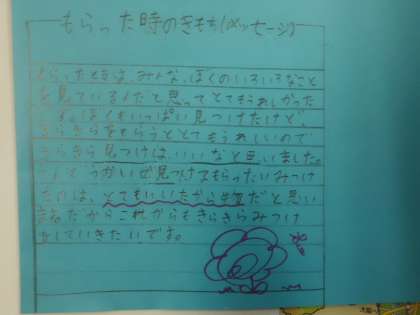 もらった時のきもち(メッセージ)
もらったときは、みんな、ぼくのいろいろなこと
を見ているんだと思ってとてもうれしかった
です。ぼくもいっぱい見つけたけど、
きらきらをもらうととてもうれしいので
きらきら見つけは、いいなと思いました。
見つけてもらったいみつけ
とてもいいたから物だと思い
ます。だからこれからもきらきらみつけ
をしていきたいです。